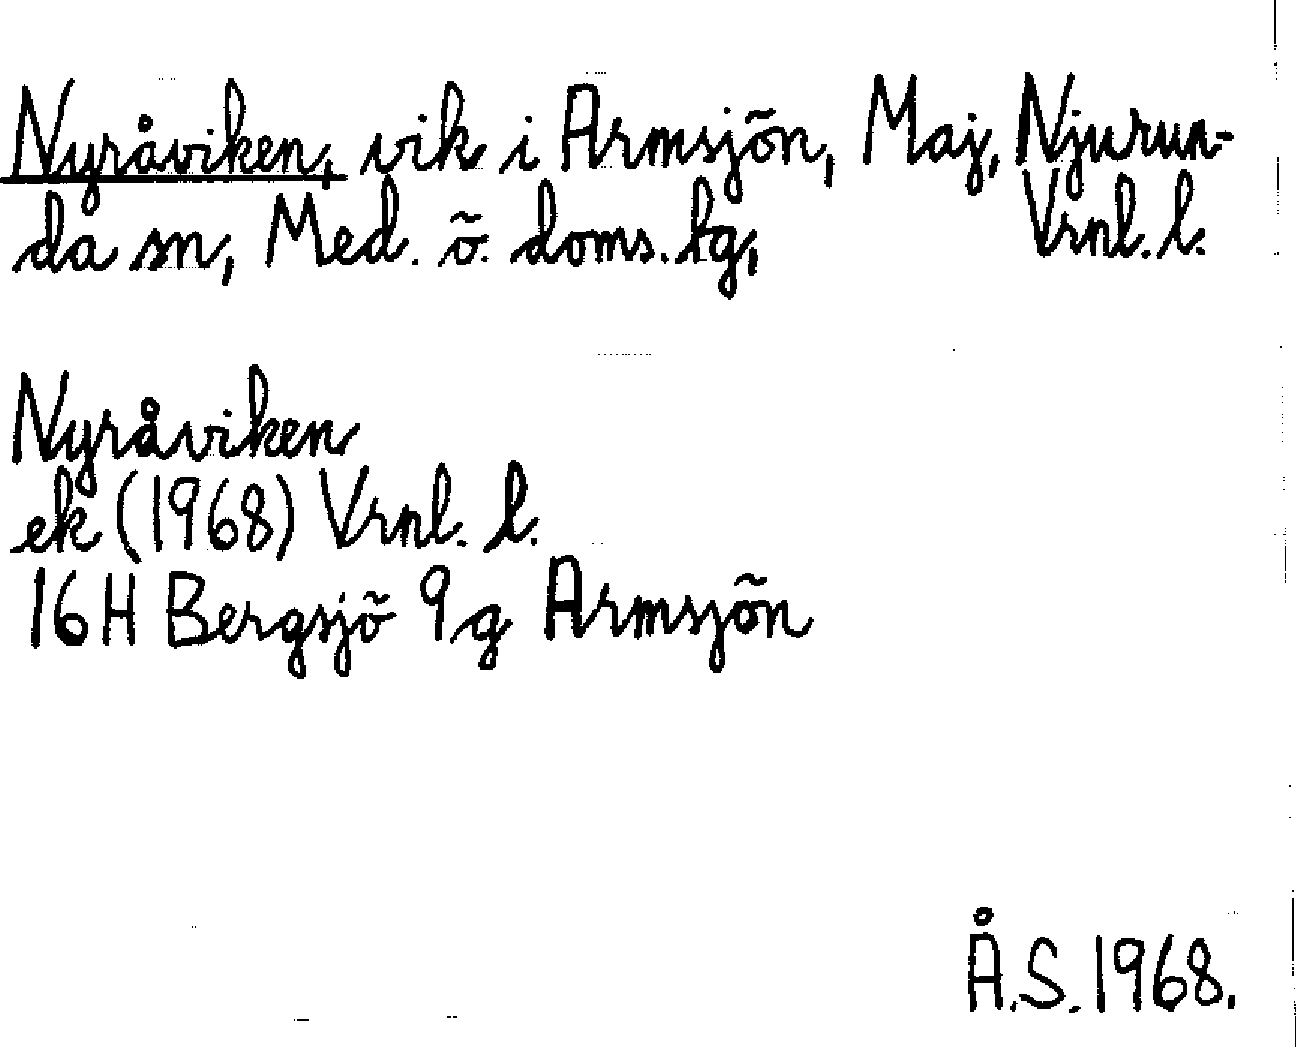 Nyråviken, vik i Armsjön, Maj, Njurun-
da sn, Med. ö. doms. lg, Vrnl. l.
Nyråviken
ek (1968) Vrnl. l.
16H Bergsjö 9g Armsjön
Å.S. 1968.